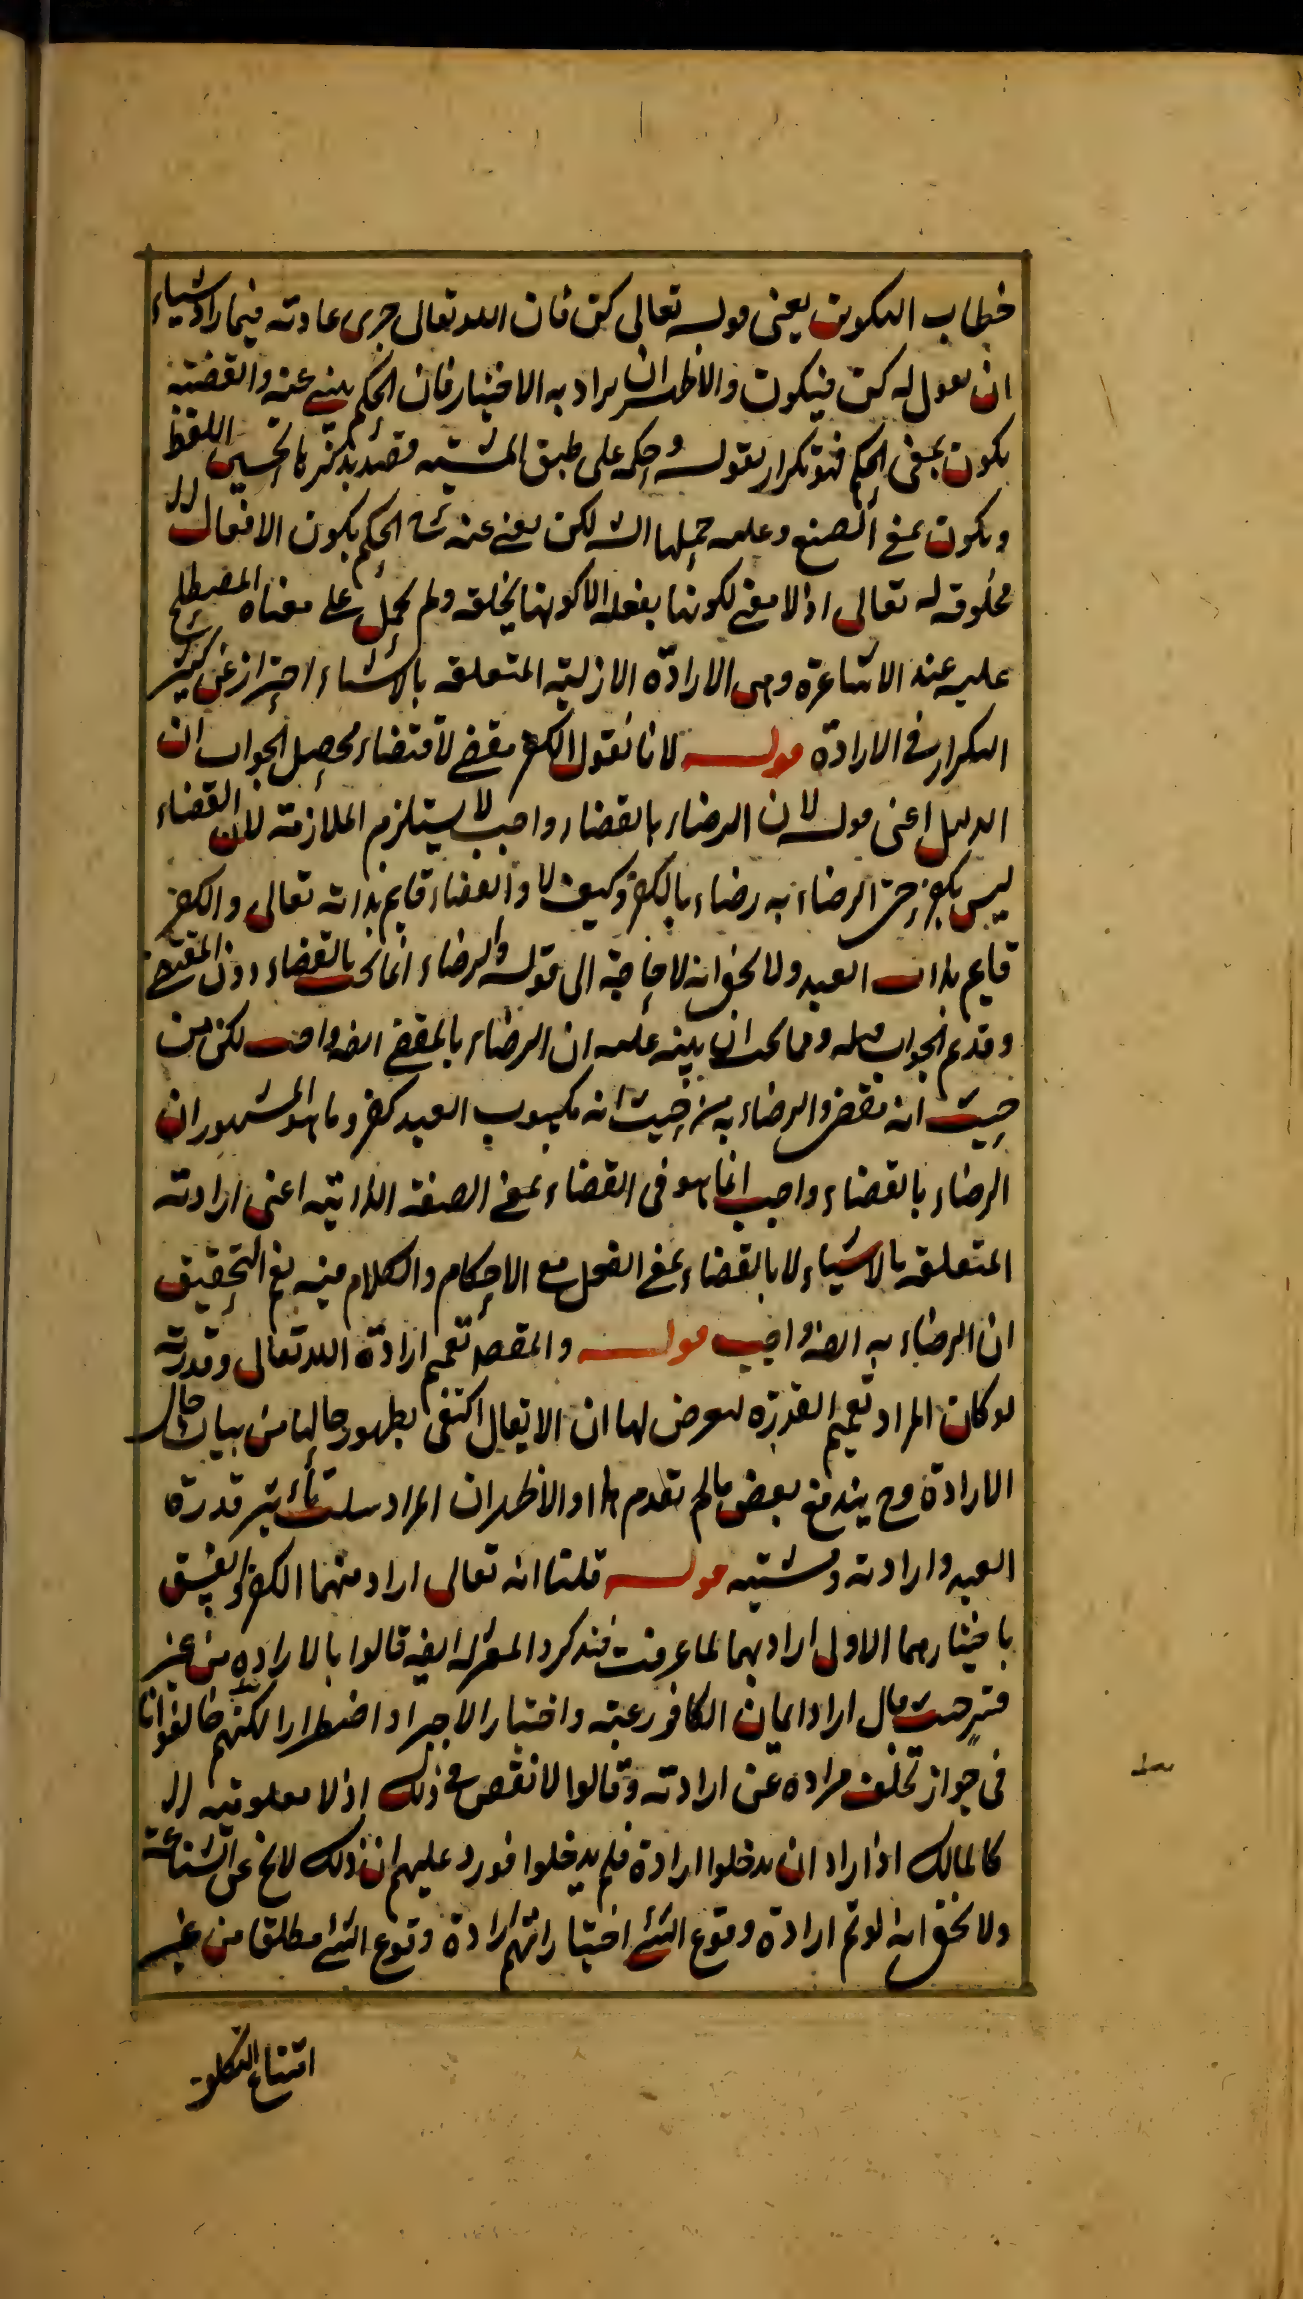 خطاب التكوين يعنى قوله تعالى كن فان الله تعالى جرى عادته فيما اراد شياء
ان يقول له كن فيكون والاظهر ان يراد به الاختيار فان الحكم ينبئ عنه والقضية
يكون بمعنى الحكم فهو تكرار لقوله وحكمه على طبق المشيه قصد بذكرها تحسين اللفظ
ويكون بمعنى الصنع وعليه حملها الش لكن يغنى عنه ح الحكم بكون الافعال
مخلوقة له تعالى اذ لا معنى لكونها بفعله الا كونها بخلقه ولم يحمل على معناه المصطلح
عليه عند الاشاعرة وهى الارادة الازلية المتعلقه بالاشياء احترازا عن كثير
التكرار فى الارادة قوله لانا نقول الكفر مقضى لا قضاء محصل الجواب ان
الدليل اعنى قوله لان الرضاء بالقضاء واجب لا يستلزم الملازمة لان القضاء
ليس بكفر حتى الرضاء به رضاء بالكفر وكيف لا والقضاء قايم بذاته تعالى والكفر
قايم بذات العبد ولا يخفى انه لا حاجة الى قوله والرضاء انما يجب بالقضاء دون المقضى
وقد تم الجواب قبله ومما يجب ان ينبه عليه ان الرضاء بالمقضى ايضا واجب لكن من
حيث انه مقضى والرضاء به من حيث انه مكسوب العبد كفر وما هو المشهور ان
الرضاء بالقضاء واجب انما هو فى القضاء بمعنى الصفة الذاتية اعنى ارادته
المتعلقه بالاشياء لا بالقضاء بمعنى الفعل مع الاحكام والكلام فيه نعم التحقيق
ان الرضاء به ايضا واجب قوله والمقصود تعميم ارادة الله تعالى وقدرته
لو كان المراد تعميم القدرة لتعرض لها الا ان يقال اكتفى بظهور حالها من بيان حال
الارادة وح يندفع بعض ما لم تقدم والاظهر ان المراد سلب تأثير قدرة
العبد وارادته ومشيته قوله قلنا انه تعالى اراد منهما الكفر والفسق
باختيارهما الاولى ارادهما لما عرفت فتذكر والمعتزلة ايضا قالوا بالارادة من غير
قسر حيث قال اراد ايمان الكافر رغبة واختيارا لا جبرا واضطرارا لكنهم خالفونا
فى جواز تخلف مراده عن ارادته وقالوا لا نقص فى ذلك اذ لا مغلوبيه
كالمالك اذا اراد ان يدخلوا ارادة فلم يدخلوا فورد عليهم ان ذلك لا يخ عن الشناعة
ولا يخفى انه لو تم ارادة وقوع الشئ اختيارا تم ارادة وقوع الشئ مطلقا من غير
امتناع التكلو